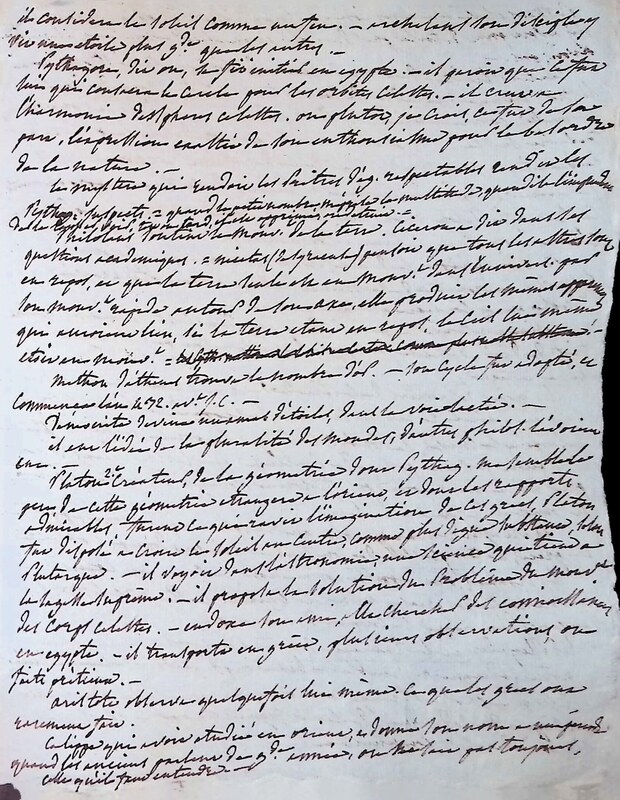 il considera le soleil comme un feu. — archelaus son disciple y
vit une étoile plus gde que les autres. —
Pythagore, dit on, se fit initié en egypte. — il pensa que le feu
lui qui conserva le cercle pour les orbites célestes. — il crut à
l'harmonie des sphères célestes. ou plutôt, je crois, ce fut de sa
part, l'expression exaltée de son enthousiasme pour le bel ordre
de la nature. —
le mystère qui rendoit les Prêtres d'eg. respectables rendit les
Pythag. suspects. = quand le petit nombre méprise la multitude, quand il l'
tôt ou tard, est opprimé, ou détruit. =
Philolaus soutint le mouv.t de la terre. Ciceron a dit dans les
questions academiques. = nicetas (de Syracuse) pensoit que tous les astres sont
en repos, et que la terre seule est en mouv.t dans l'univers. par
son mouv.t rapide autour de son axe, elle produit les mêmes apparences
qui auroient lieu, si la terre etant en repos, le ciel lui même
etoit en mouv.t =
methon d'athenes trouva le nombre d'or. — son cycle fut adopté, et
commença l'an 432. av.t J.C. —
Democrite devina un amas d'étoiles, dans la voie lactée. —
il eut l'idée de la pluralité des mondes, d'autres philos. l'avoient
eue. —
Platon 2e Créateur, de la géométrie dont Pythag. rassembla le
peu, de cette géométrie etrangere a l'orient, et dont les rapports
admirables, furent ce qui ravit l'imagination de ces grecs, Platon
fut disposé a croire le soleil au centre, comme plus digne substance, selon
Plutarque. — il voyoit dans l'astronomie, une science qui tend a
la sagesse suprême. — il proposa la solution du Problème du mouv.t
des Corps célestes. — eudoxe son ami, alla chercher des connoissances
en egypte. — il transporta en grèce, plusieurs observations ou
faits prétieux. —
aristote observa quelquefois lui même. ce que les grecs ont
rarement fait.
Calippe qui avoit etudié en orient, a donné son nom a une période
quand les anciens parlent de gde année, on ne sait pas toujours,
celle qu'il faut entendre. —